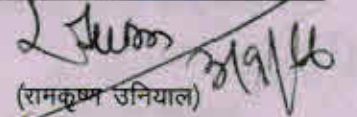 3/9/16
(रामकृष्ण उनियाल)